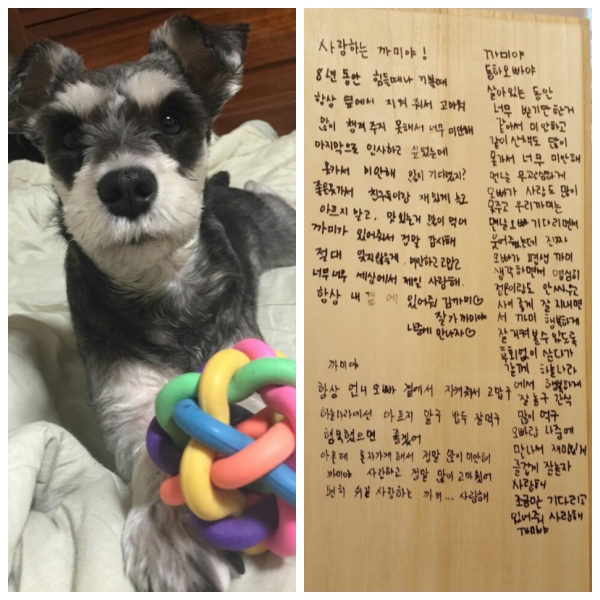 사랑하는 까미야!
8년 동안 힘들때나 기쁠때
항상 옆에서 지켜 줘서 고마워
많이 챙겨 주지 못해서 너무 미안해
마지막으로 인사하고 싶었는데
못가서 미안해 많이 기다렸지?
좋은곳가서 친구들이랑 재밌게 놀고
아프지 말고, 맛있는거 많이 먹어
까미가 있어줘서 정말 감사해
절대 잊지않을게. 미안하고 고맙고
너무너무 세상에서 제일 사랑해.
항상 내 곁에 있어줘 김까미♡
잘가 까미야
나중에 만나자♡
까미야
항상 언니 오빠 곁에서 지켜줘서 고맙구
하늘나라에선 아프지 말구 밥두 잘먹구
행복했으면 좋겠어
아픈데 혼자가게 해서 정말 많이 미안해
까미야 사랑하고 정말 많이 고마웠어
편히 쉬렴 사랑하는 까미... 사랑해
까미야
동하오빠야
살아있는 동안
너무 받기만 한거
같아서 미안하고
같이 산책도 많이
못가서 너무 미안해
맨날 무뚝뚝하게
오빠가 사랑도 많이
못주고 우리까미는
맨날 오빠 기다리면서
웃어주는데 진짜
오빠가 평생 까미
생각하면서 열심히
전은이랑도 안싸우고
사이 좋게 잘 지내면
서 까미 행복하게
잘 지켜볼수 있도록
후회없이 살다가
갈게. 하늘나라
에서 행복하게
잘 놀구 간식
많이 먹구
오빠랑 나중에
만나서 재미있게
즐겁게 잘놀자
사랑해
조금만 기다리고
있어줘 사랑해
까미야